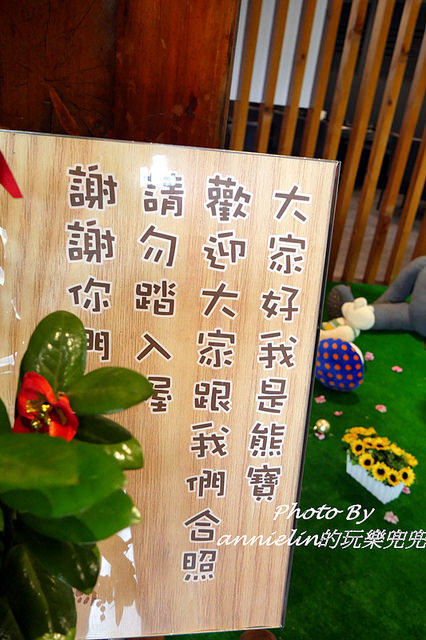 大家好我是熊寶
歡迎大家跟我們合照
請勿踏入屋
謝謝你們
Photo By
annielin的玩樂兜兜